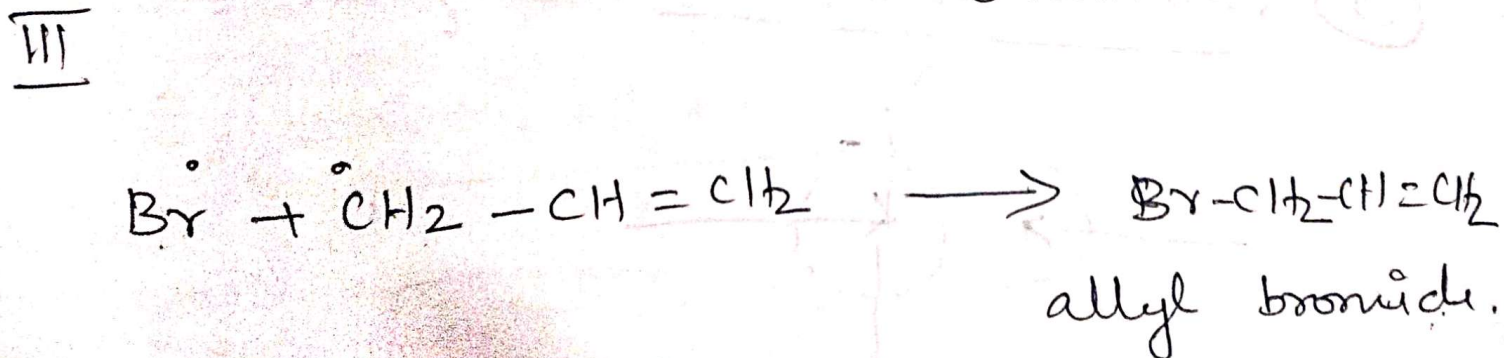 III
Br• + •CH2 - CH = CH2 ⟶ Br-CH2-CH=CH2
allyl bromide.